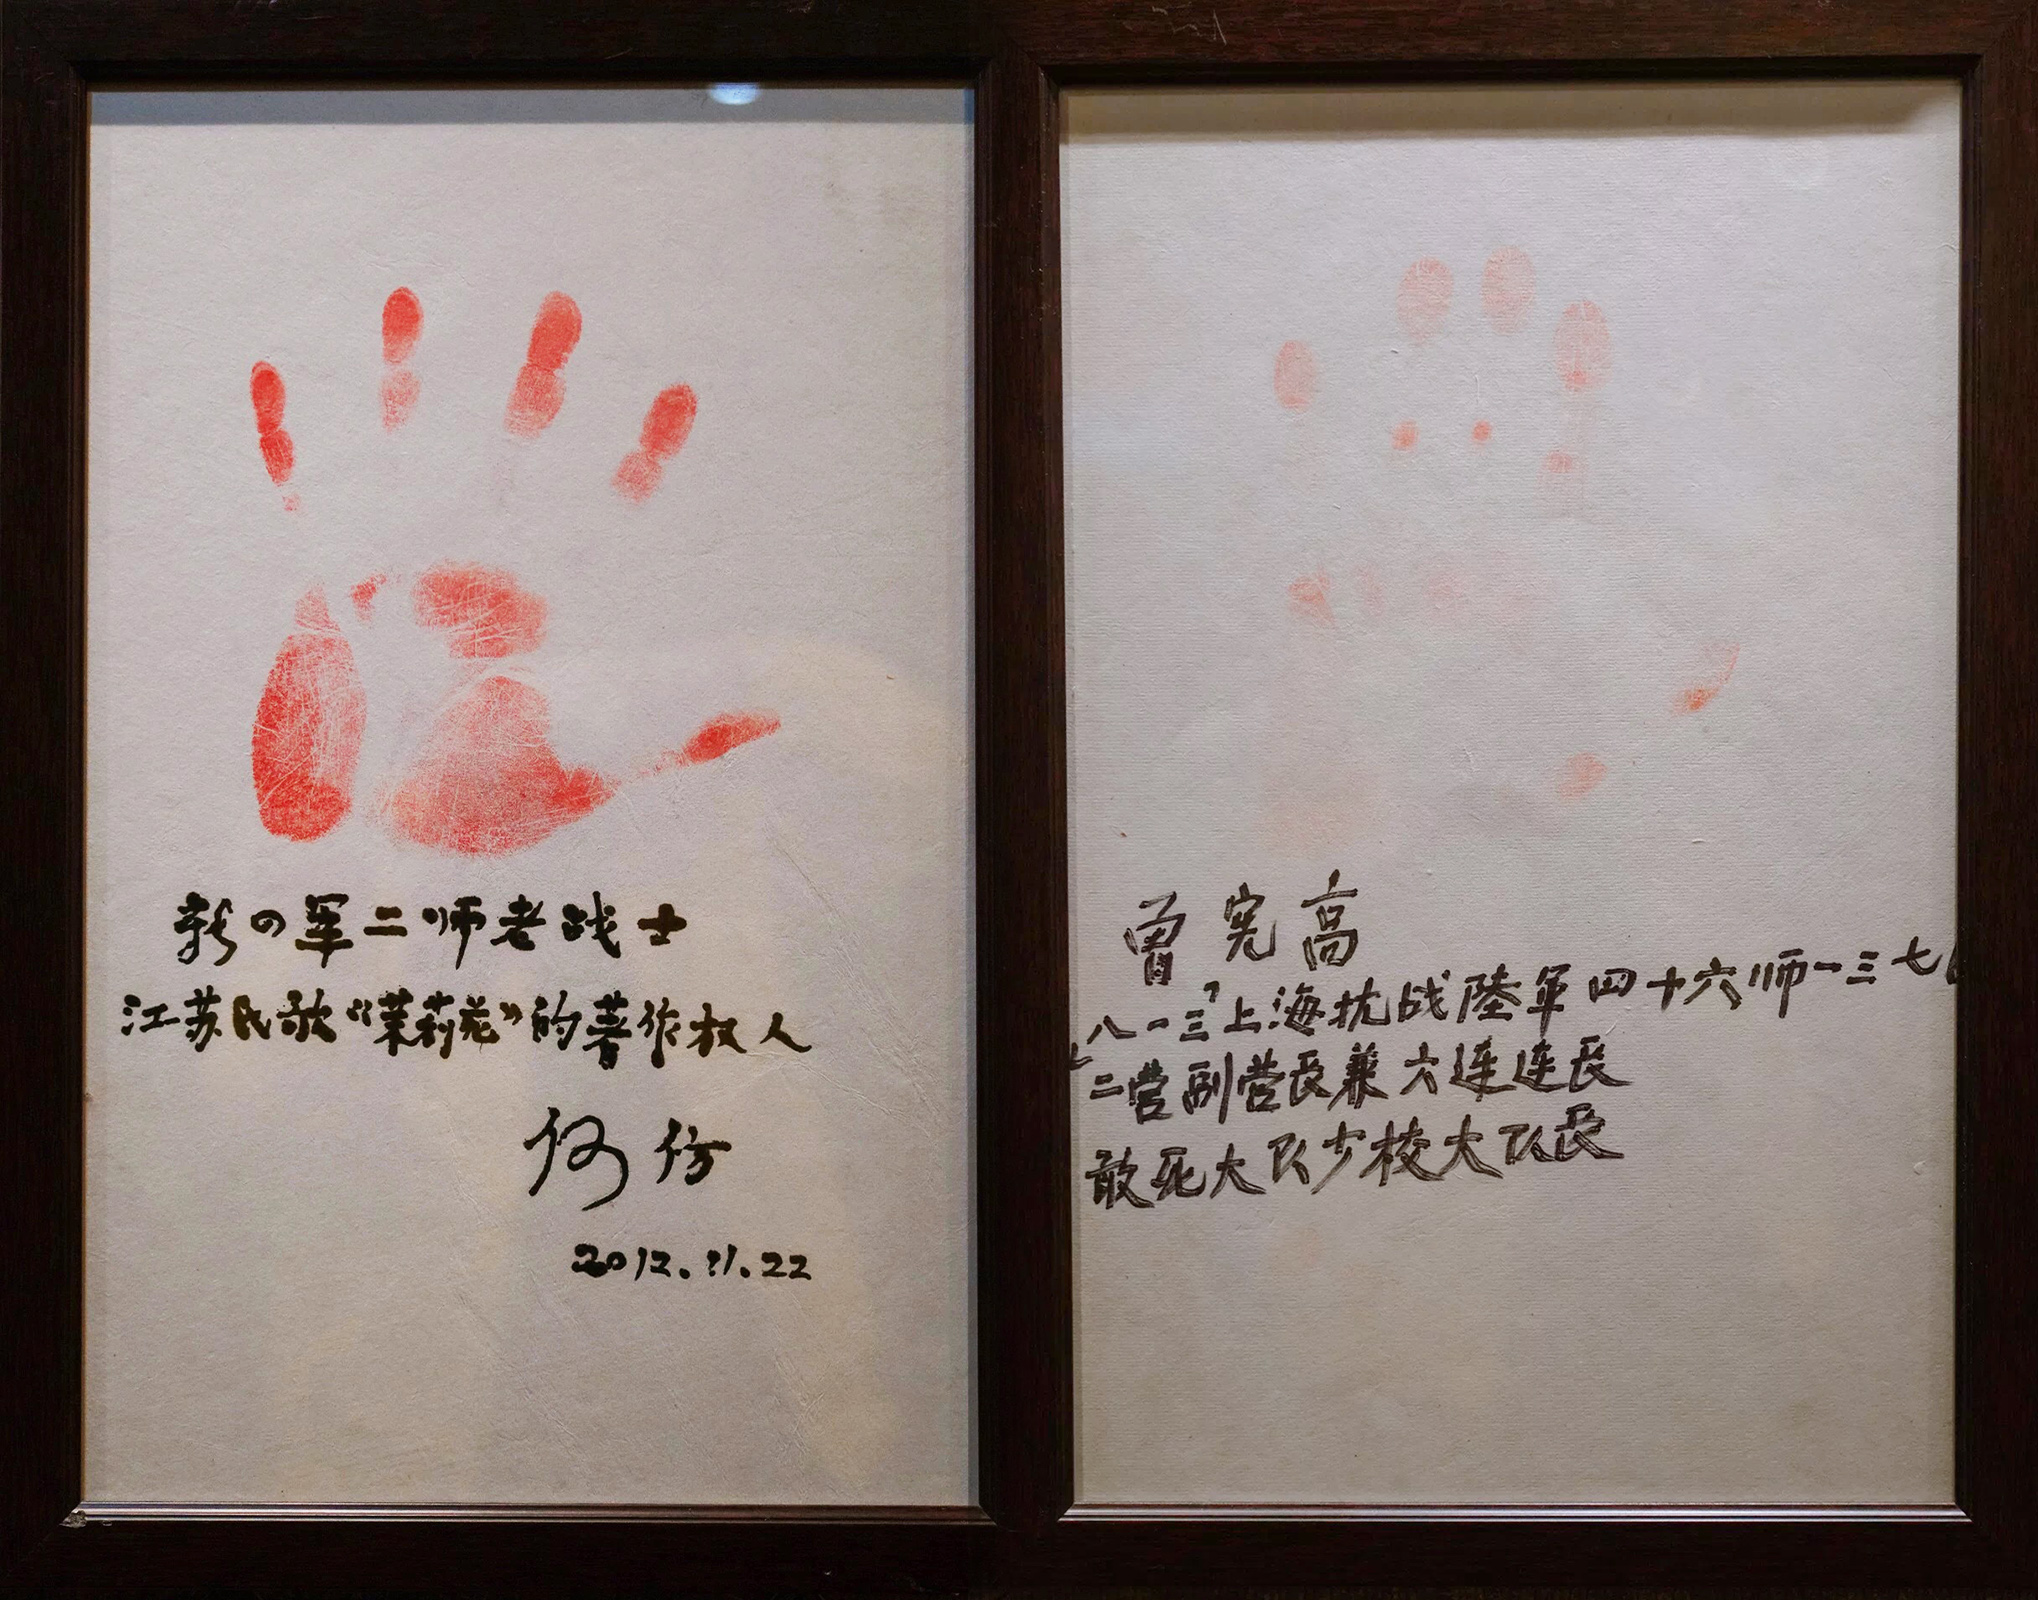 新四军二师老战士
江苏民歌“茉莉花”的著作权人
何仿
2012.11.22
曾宪高
八一三上海抗战陸军四十六师一三七
二营副营長兼六连连長
敢死大队少校大队長